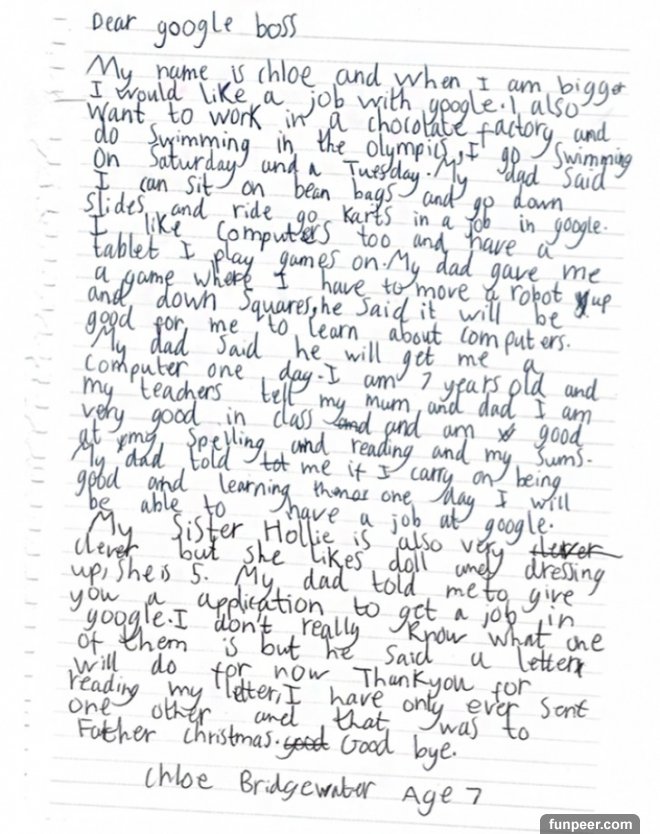 Dear google boss
My name is chloe and when I am bigger
I would like a job with google. I also
want to work in a chocolate factory and
do swimming in the olympics, I go swimming
on Saturday and a Tuesday. My dad said
I can sit on bean bags and go down
slides and ride go karts in a job in google.
I like computers too and have a
tablet I play games on. My dad gave me
a game where I have to move a robot up
and down squares, he said it will be
good for me to learn about computers.
My dad said he will get me a
computer one day. I am 7 years old and
my teachers tell my mum and dad I am
very good in class and and am good
at my spelling and reading and my sums.
My dad told me if I carry on being
good and learning one day I will
be able to have a job at google.
My sister Hollie is also very clever
clever but she likes doll and dressing
up, she is 5. My dad told me to give
you a application to get a job in
google. I don't really know what one
of them is but he said a letter
will do for now Thankyou for
reading my letter, I have only ever sent
one other and that was to
Father christmas. good Good bye.
Chloe Bridgewater Age 7
funpeer.com